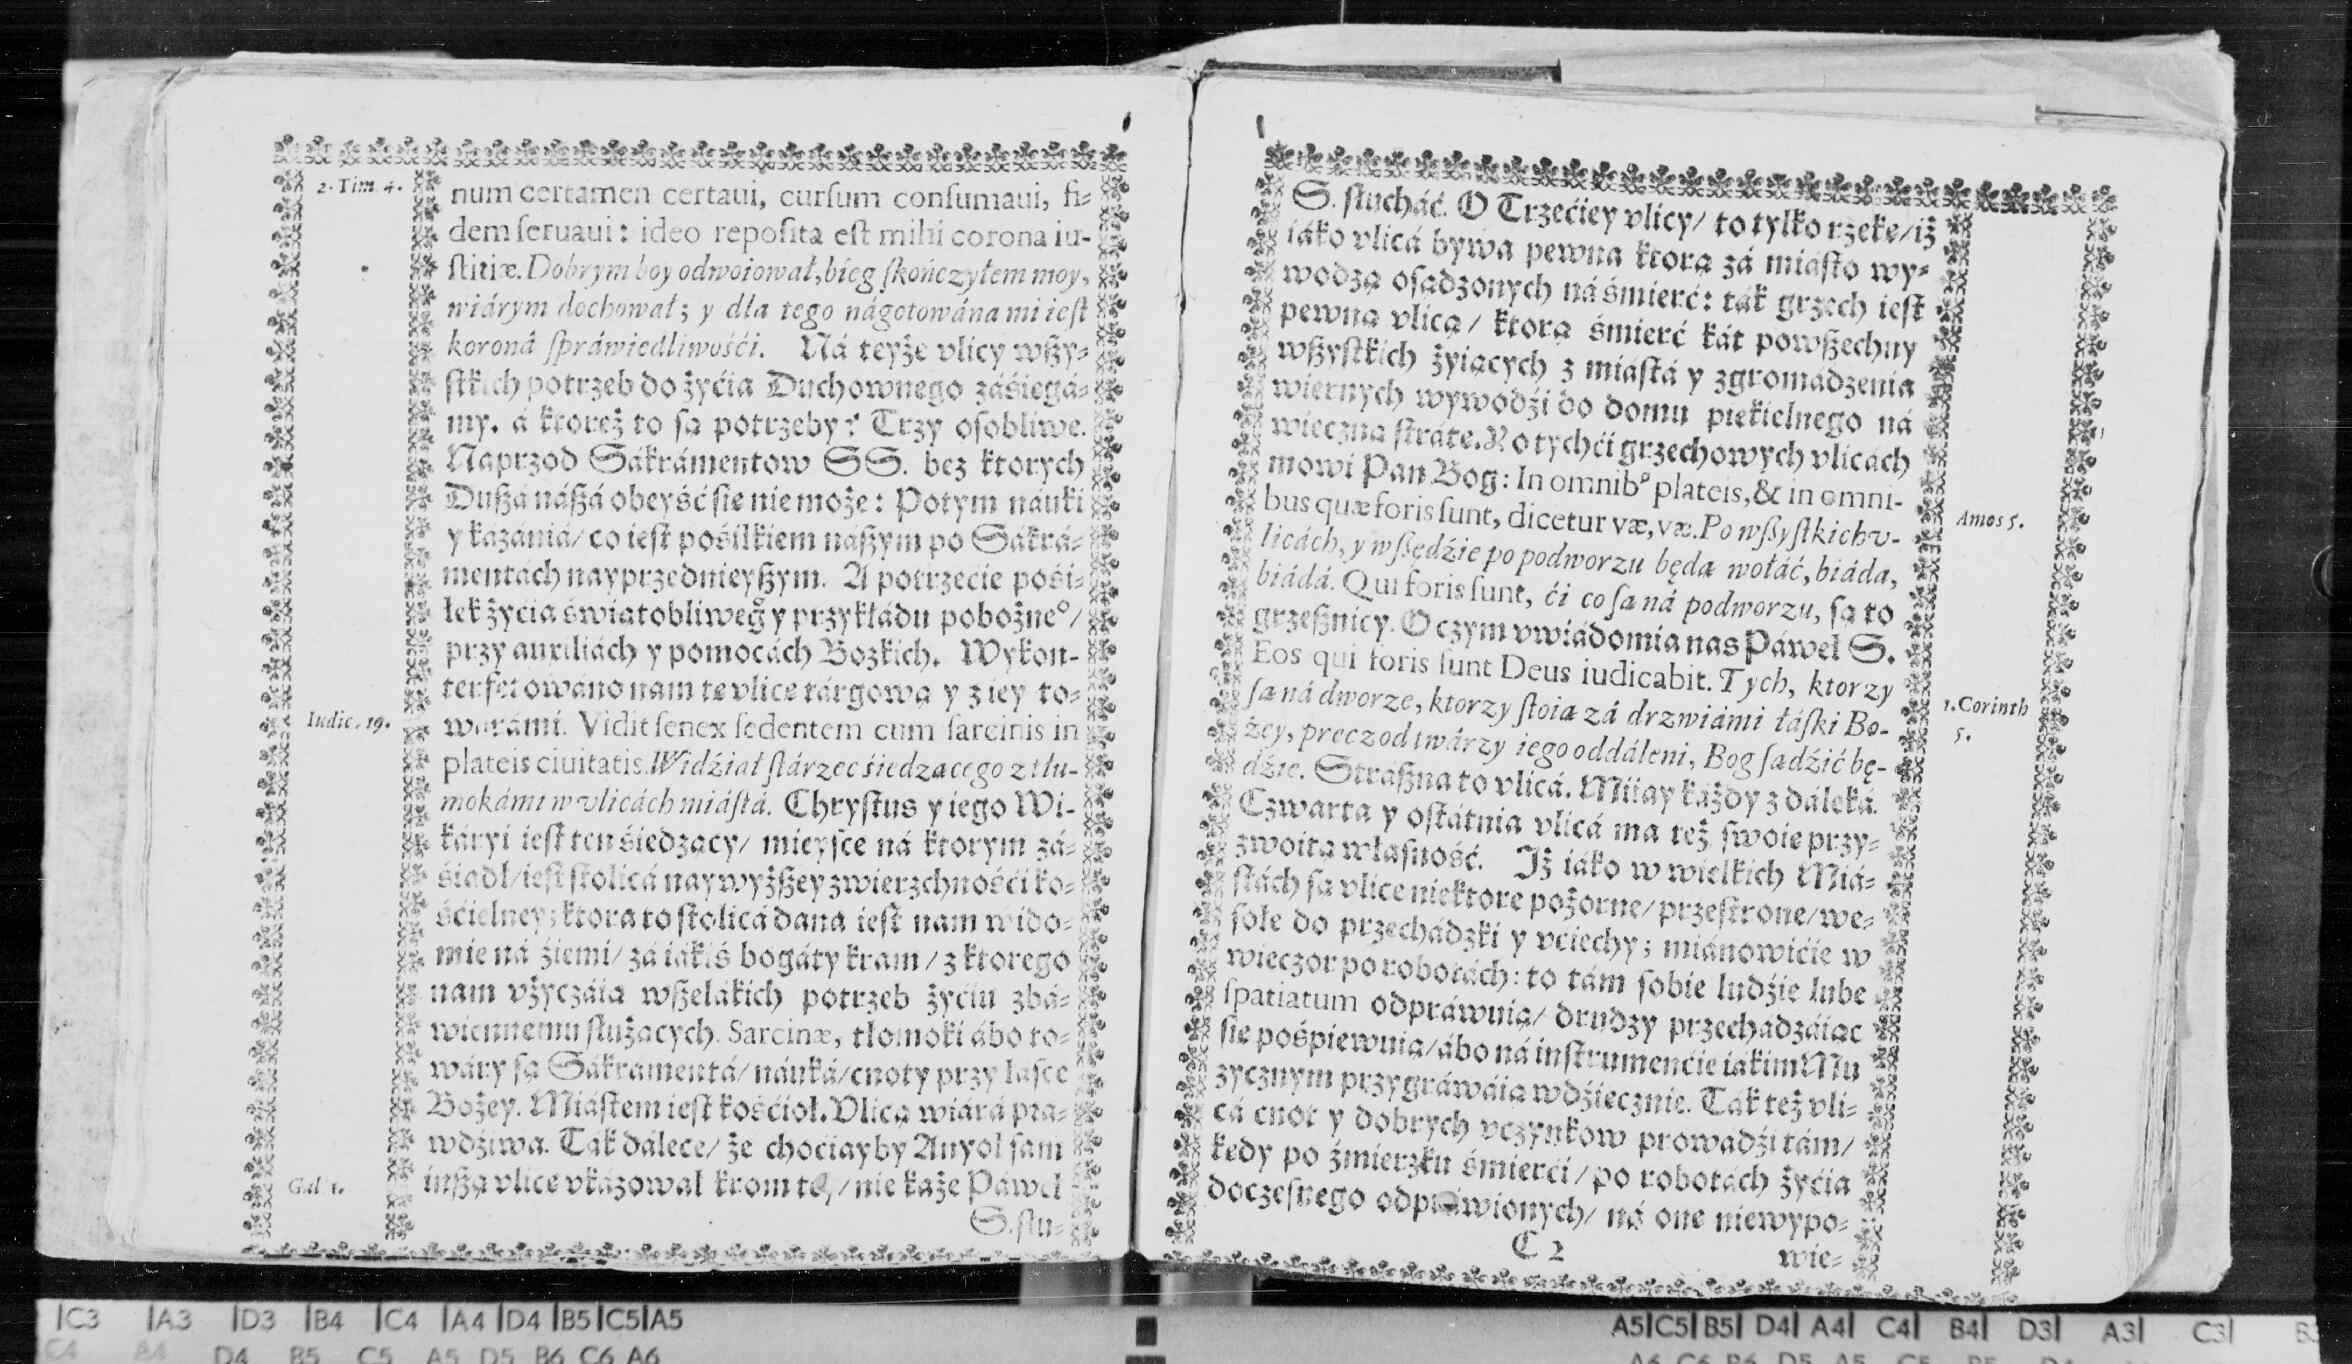 2. Tim. 4.
num certamen certaui, curſum conſumaui, fi-
dem ſeruaui: ideo repoſita eſt mihi corona iu-
ſtitiæ. Dobrym boy odwoiował, bieg ſkończyłem moy,
wiárym dochował; y dla tego nágotowána mi ieſt
koroná ſpráwiedliwośći. Ná teyże vlicy wßy-
ſtkich potrzeb do żyćia Duchownego záśiegá-
my. á ktoreż to ſą potrzeby? Trzy oſobliwe.
Naprzod Sákrámentow SS. bez ktorych
Dußá náßá obeyść ſie nie może: Potym náuki
y kazániá/ co ieſt pośiłkiem náßym po Sákrá-
mentách nayprzednieyßym. A potrzećie pośi-
łek życia świątobliweg° y przykłádu pobożne°/
przy auxiliách y pomocách Bozkich. Wykon-
terfetowáno nam tę vlice tárgową y z iey to-
warámi. Vidit ſenex ſedentem cum ſarcinis in
Iudic. 19.
plateis ciuitatis. Widźiał ſtárzec śiedzącego z tłu-
mokámi w vlicách miáſtá. Chryſtus y iego Wi-
káryi ieſt ten śiedzący/ mieyſce ná ktorym zá-
śiadł/ ieſt ſtolicá naywyżßey zwierzchnośći ko-
śćielney; ktora to ſtolicá daná ieſt nam wido-
mie ná źiemi/ zá iákiś bogáty kram/ z ktorego
nam vżyczáią wßelákich potrzeb żyćiu zbá-
wiennemu ſłużących. Sarcinæ, tłomoki ábo to-
wáry ſą Sákramentá/ náuká/ cnoty przy łaſce
Bożey. Miáſtem ieſt kośćioł. Vlicą wiárá pra-
wdźiwa. Ták dálece/ że chociayby Anyoł ſam
inßą vlice vkázował krom tey/ nie każe Páweł
Gal 1.
S. ſłu-
S. ſłucháć. O Trzećiey vlicy/ to tylko rzekę/ iż
iáko vlicá bywa pewna ktorą zá miáſto wy-
wodzą oſądzonych ná śmierć: ták grzech ieſt
pewną vlicą/ ktorą śmierć kát powßechny
wßyſtkich żyiących z miáſtá y zgromádzenia
wiernych wywodźi do domu piekielnego ná
wieczną ſtráte. Y o tychći grzechowych vlicách
mowi Pan Bog: In omnib° plateis, & in omni-
bus quæ foris ſunt, dicetur væ, væ. Po wßyſtkich v-
Amos 5.
licách, y wßędźie po podworzu będą wołáć, biáda,
biádá. Qui foris ſunt, ći co ſą ná podworzu, ſą to
grzeßnicy. O czym vwiádomia nas Páweł S.
Eos qui foris ſunt Deus iudicabit. Tych, ktorzy
ſą ná dworze, ktorzy ſtoią zá drzwiámi łáſki Bo-
1. Corinth
5.
żey, precz od twárzy iego oddáleni, Bog ſądźić bę-
dźie. Stráßna to vlicá. Miiay káżdy z dáleká.
Czwarta y oſtátnia vlicá ma też ſwoie przy-
zwoitą właſność. Iż iáko w wielkich Miá-
ſtách ſą vlice niektore pozorne/ przeſtrone/ we-
ſołe do przechadzki y vciechy; miánowićie w
wieczor po robotách: to tám ſobie ludźie lube
ſpatiatum odpráwuią/ drudzy przechádzáiąc
ſie pośpiewuią/ ábo ná inſtrumenćie iákim Mu
zycznym przygráwáią wdźiecznie. Ták też vli-
cá cnot y dobrych vczynkow prowadźi tám/
kędy po źmierzku śmierći/ po robotách żyćia
doczeſnego odpráwionych/ ná one niewypo-
C 2
wie-